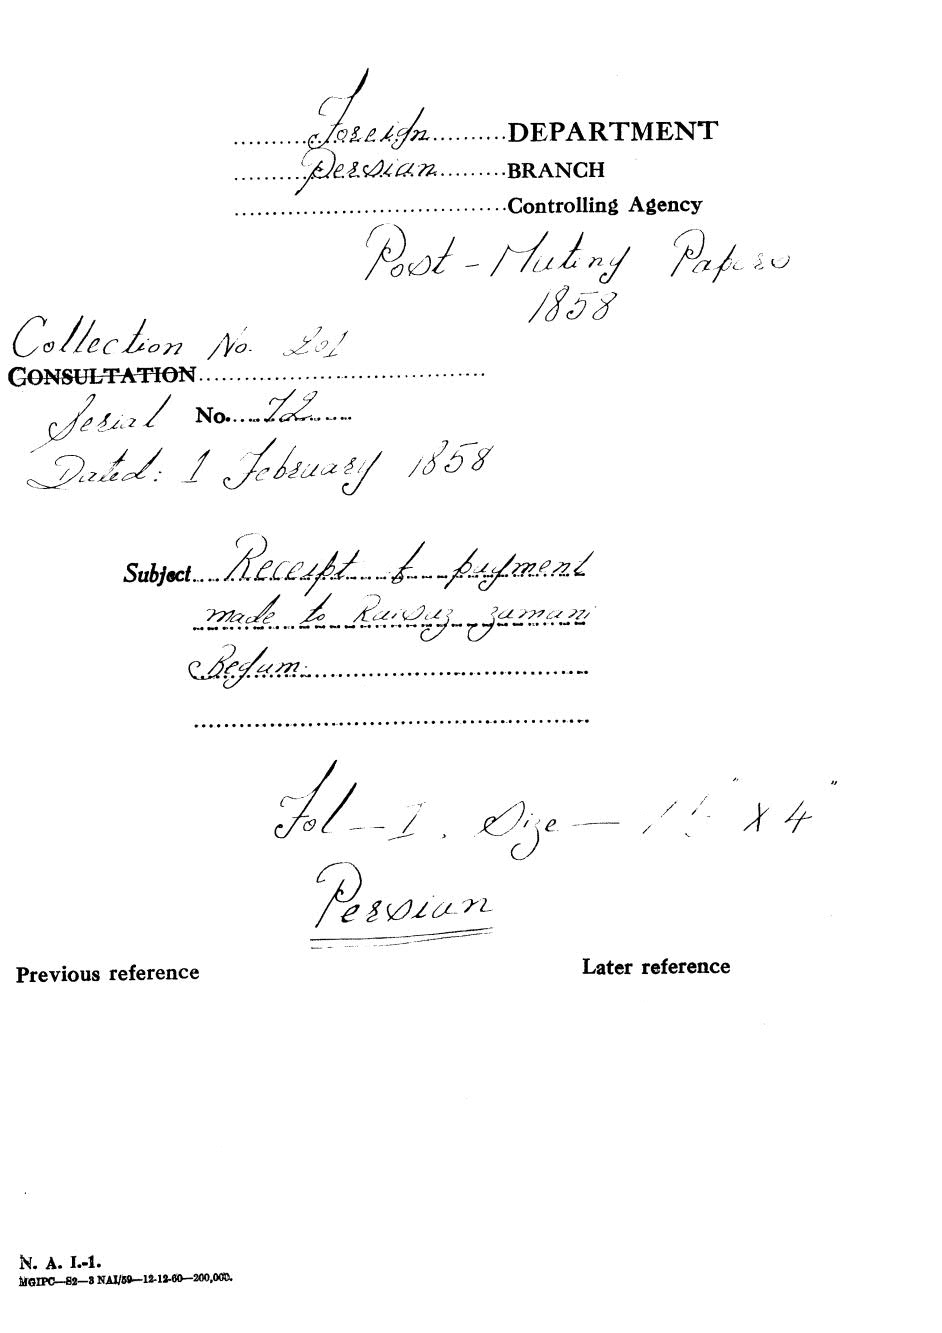 Foreign DEPARTMENT
Persian BRANCH
Controlling Agency
Post-Mutiny Papers
1858
Collection No. 201
CONSULTATION
Serial No. 72
Dated: 1 February 1858
Subject Receipt of payment
made to Raisuz zamani
Begum.
Fol - 1. Size — " X 4"
Persian
Previous reference Later reference
N. A. I.-1.
MGIPC—S2—3 NAI/59—12-12-60—200,000.